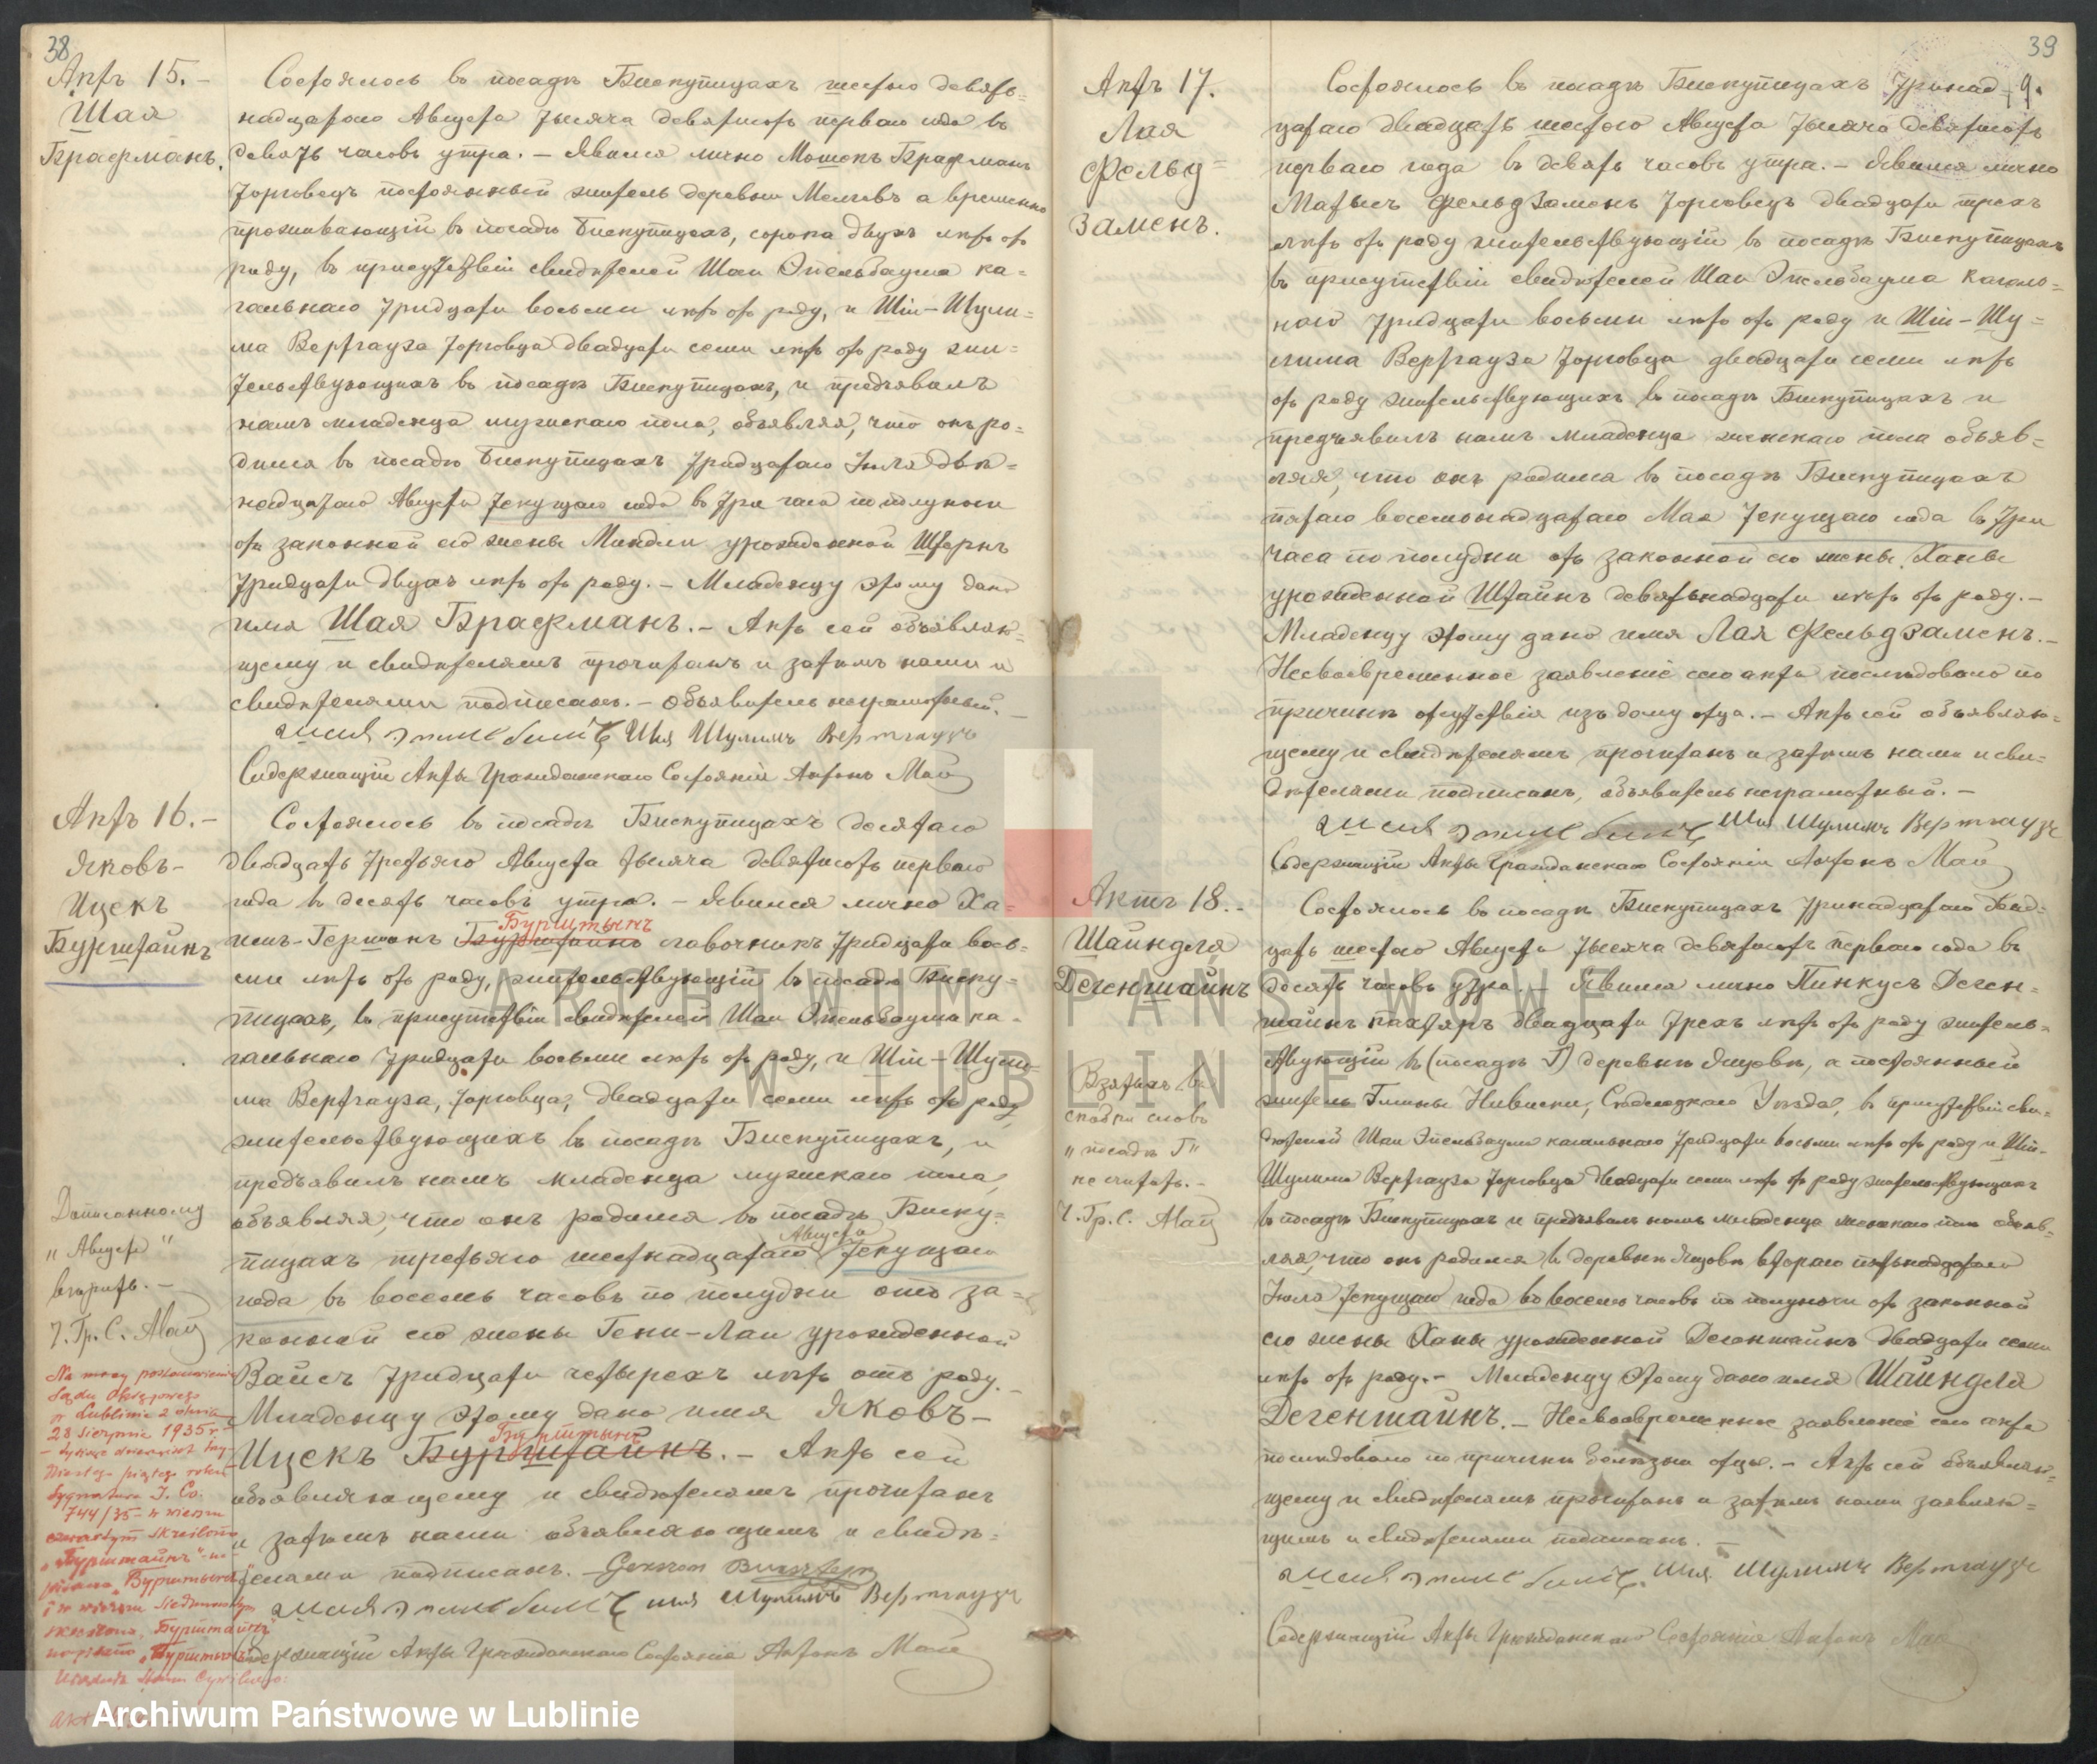 38
Актъ 15.-
Шая
Брафманъ.
Состоялось въ посадѣ Бискупицахъ шестого девят-
надцатого Августа тысяча девятьсотъ первого года въ
девять часовъ утра. - Явился лично Мошекъ Брафманъ
торговецъ постоянный житель деревни Мелгевъ а временно
проживающій въ посадѣ Бискупицахъ, сорока двухъ лѣтъ отъ
роду, въ присутствіи свидѣтелей Шаи Эпельбаума ка-
гальнаго тридцати восьми лѣтъ отъ роду, и Шіи-Шули-
ма Вертгауза торговца двадцати семи лѣтъ отъ роду жи-
тельствующихъ въ посадѣ Бискупицахъ, и предъявилъ
намъ младенца мужескаго пола, объявляя, что онъ ро-
дился въ посадѣ Бискупицахъ тридцатаго Іюля двѣ-
надцатаго Августа текущаго года въ три часа по полуночи
отъ законной его жены Миндли урожденной Штернъ
тридцати двухъ лѣтъ отъ роду. - Младенцу этому дано
имя Шая Брафманъ. - Актъ сей объявляю-
щему и свидѣтелямъ прочитанъ и затѣмъ нами и
свидѣтелями подписанъ. - Объявитель неграмотный. -
Шія Шулимъ Вертгаузъ
Содержащій Акты Гражданскаго Состоянія Антонъ Май
Актъ 16.-
Яковъ-
Ицекъ
Бурштайнъ
Состоялось въ посадѣ Бискупицахъ десятаго
двадцать третьяго Августа тысяча девятьсотъ перваго
года въ десять часовъ утра. - Явился лично Ха-
Бурштынъ
имъ-Гершонъ Бурштайнъ лавочникъ тридцати вось-
ми лѣтъ отъ роду, жительствующій въ посадѣ Биску-
пицахъ, въ присутствіи свидѣтелей Шаи Эпельбаума ка-
гальнаго тридцати восьми лѣтъ отъ роду, и Шіи-Шули-
ма Вертгауза, торговца, двадцати семи лѣтъ отъ роду,
жительствующихъ въ посадѣ Бискупицахъ, и
предъявилъ намъ младенца мужескаго пола,
объявляя, что онъ родился въ посадѣ Биску-
Августа
пицахъ третьяго шестнадцатаго текущаго
года въ восемь часовъ по полудни отъ за-
конной его жены Гени-Лаи урожденной
Вайсъ тридцати четырехъ лѣтъ отъ роду. -
Младенцу этому дано имя Яковъ-
Бурштынъ
Ицекъ Бурштайнъ. - Актъ сей
объявляющему и свидѣтелямъ прочитанъ
и затѣмъ нами объявляющимъ и свидѣ-
телями подписанъ. - Gerszon Bursztyn
Шія Шулимъ Вертгаузъ
Содержащій Акты Гражданскаго Состоянія Антонъ Май
Дописанному
„Августа"
вѣрить. -
Ч. Гр. С. Май
Na mocy postanowienia
Sądu Okręgowego
w Lublinie z dnia
28 sierpnia 1935 r.
Sygnatura I. Co.
744/35 w wierszu
czwartym skreślono
„Бурштайнъ"
„Бурштынъ"
i w wierszu siedemnastym
skreślono „Бурштайнъ"
„Бурштынъ"
39
9.
Актъ 17.
Лая
Фельд-
заменъ.
Состоялось въ посадѣ Бискупицахъ тринад-
цатаго двадцать шестого Августа тысяча девятьсотъ
перваго года въ девять часовъ утра. - Явился лично
Матысъ Фельдзаменъ торговецъ двадцати трехъ
лѣтъ отъ роду жительствующій въ посадѣ Бискупицахъ
въ присутствіи свидѣтелей Шаи Эпельбаума кагаль-
наго тридцати восьми лѣтъ отъ роду и Шіи-Шу-
лима Вертгауза торговца двадцати семи лѣтъ
отъ роду жительствующихъ въ посадѣ Бискупицахъ и
предъявилъ намъ младенца женскаго пола объяв-
ляя, что онъ родился въ посадѣ Бискупицахъ
пятаго восемнадцатаго Мая текущаго года въ три
часа по полудни отъ законной его жены Ханы
урожденной Штайнъ девятнадцати лѣтъ отъ роду. -
Младенцу этому дано имя Лая Фельдзаменъ. -
Несвоевременное заявленіе сего акта послѣдовало по
причинѣ отсутствія изъ дому отца. - Актъ сей объявляю-
щему и свидѣтелямъ прочитанъ и затѣмъ нами и сви-
дѣтелями подписанъ, объявитель неграмотный. -
Шія Шулимъ Вертгаузъ
Содержащій Акты Гражданскаго Состоянія Антонъ Май
Актъ 18.-
Шайндля
Дегенштайнъ
Состоялось въ посадѣ Бискупицахъ тринадцатаго двад-
цать шестого Августа тысяча девятьсотъ перваго года въ
десять часовъ утра. - Явился лично Пинкусъ Деген-
штайнъ пахтяръ двадцати трехъ лѣтъ отъ роду житель-
ствующій въ (посадѣ Т) деревнѣ Ящовѣ, а постоянный
житель Гмины Нивиски, Сѣдлецкаго Уѣзда, въ присутствіи сви-
дѣтелей Шаи Эпельбаума кагальнаго тридцати восьми лѣтъ отъ роду и Шіи-
Шулима Вертгауза торговца двадцати семи лѣтъ отъ роду жительствующихъ
въ посадѣ Бискупицахъ и предъявилъ намъ младенца женскаго пола объяв-
ляя, что онъ родился въ деревнѣ Ящовѣ втораго пятнадцатаго
Іюля текущаго года въ восемь часовъ по полуночи отъ законной
его жены Ханы урожденной Дегенштайнъ двадцати семи
лѣтъ отъ роду. - Младенцу этому дано имя Шайндля
Дегенштайнъ. - Несвоевременное заявленіе сего акта
послѣдовало по причинѣ болѣзни отца. - Актъ сей объявляю-
щему и свидѣтелямъ прочитанъ и затѣмъ нами заявляю-
щимъ и свидѣтелями подписанъ. -
Шія Шулимъ Вертгаузъ
Содержащій Акты Гражданскаго Состоянія Антонъ Май
Взятыхъ въ
скобки словъ
„посадѣ Т"
не читать. -
Ч. Гр. С. Май
ARCHIWUM PAŃSTWOWE
W LUBLINIE
Archiwum Państwowe w Lublinie